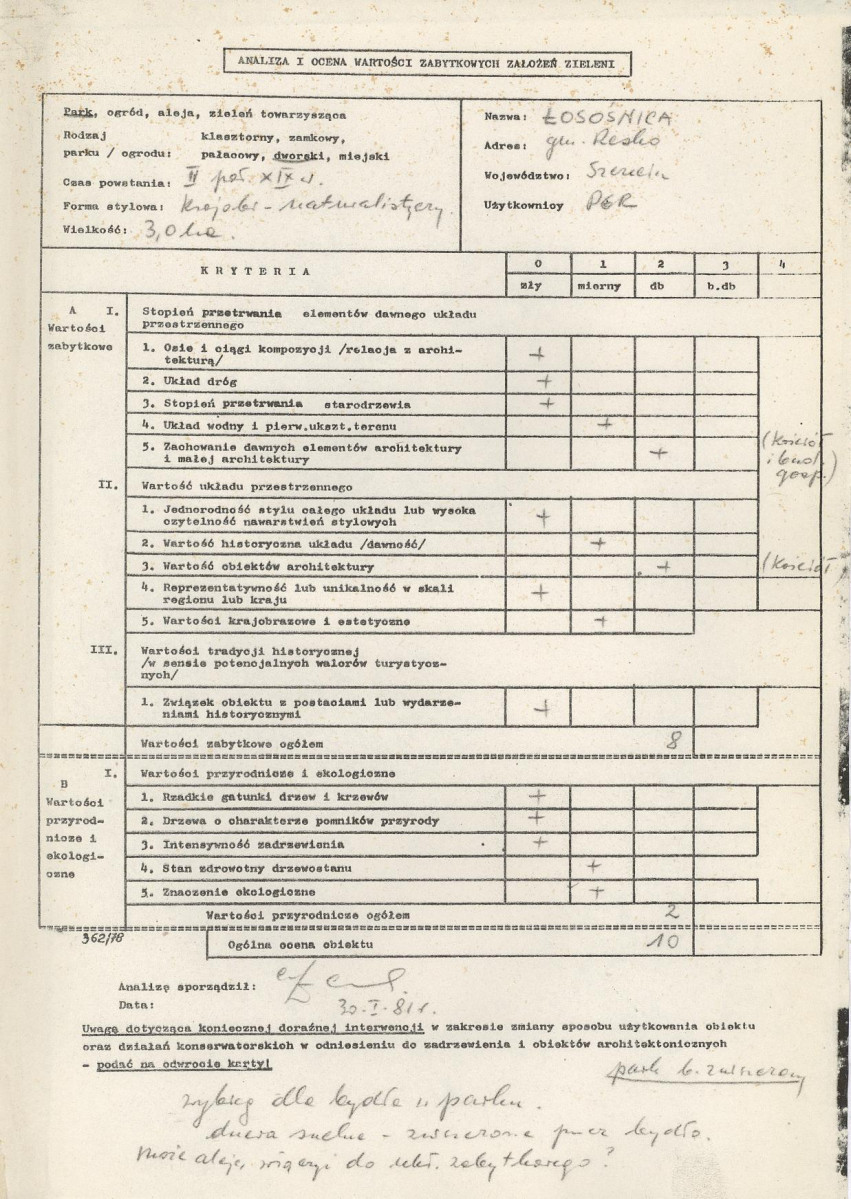 ANALIZA I OCENA WARTOŚCI ZABYTKOWYCH ZAŁOŻEŃ ZIELENI
Park, ogród, aleja, zieleń towarzysząca
Rodzaj klasztorny, zamkowy,
parku / ogrodu: pałacowy, dworski, miejski
Czas powstania: II poł. XIX w.
Forma stylowa: krajobr - naturalistyczny.
Wielkość: 3,0 ha.
Nazwa: ŁOSOŚNICA
Adres: gm. Resko
Województwo: Szczecin
Użytkownicy PGR
KRYTERIA
0 1 2 3 4
zły mierny db b.db
A I. Stopień przetrwania elementów dawnego układu
Wartości przestrzennego
zabytkowe
1. Osie i ciągi kompozycji /relacja z archi-
tekturą/ +
2. Układ dróg +
3. Stopień przetrwania starodrzewia +
4. Układ wodny i pierw.ukszt.terenu +
5. Zachowanie dawnych elementów architektury
i małej architektury +
(kościół
i bud.
gosp.)
II. Wartość układu przestrzennego
1. Jednorodność stylu całego układu lub wysoka
czytelność nawarstwień stylowych +
2. Wartość historyczna układu /dawność/ +
3. Wartość obiektów architektury + (kościół)
4. Reprezentatywność lub unikalność w skali
regionu lub kraju +
5. Wartości krajobrazowe i estetyczne +
III. Wartości tradycji historycznej
/w sensie potencjalnych walorów turystycz-
nych/
1. Związek obiektu z postaciami lub wydarze-
niami historycznymi +
Wartości zabytkowe ogółem 8
B I. Wartości przyrodnicze i ekologiczne
Wartości
przyrod-
nicze i
ekologi-
czne
1. Rzadkie gatunki drzew i krzewów +
2. Drzewa o charakterze pomników przyrody +
3. Intensywność zadrzewienia +
4. Stan zdrowotny drzewostanu +
5. Znaczenie ekologiczne +
Wartości przyrodnicze ogółem 2
362/78
Ogólna ocena obiektu 10
Analizę sporządził:
Data: 30-I-81r.
Uwagę dotycząca koniecznej doraźnej interwencji w zakresie zmiany sposobu użytkowania obiektu
oraz działań konserwatorskich w odniesieniu do zadrzewienia i obiektów architektonicznych
- podać na odwrocie karty!
park b. zniszczony
wybieg dla bydła w parku.
drzewa suche - zniszczone przez bydło.
Może aleję włączyć do ukł. zabytkowego?